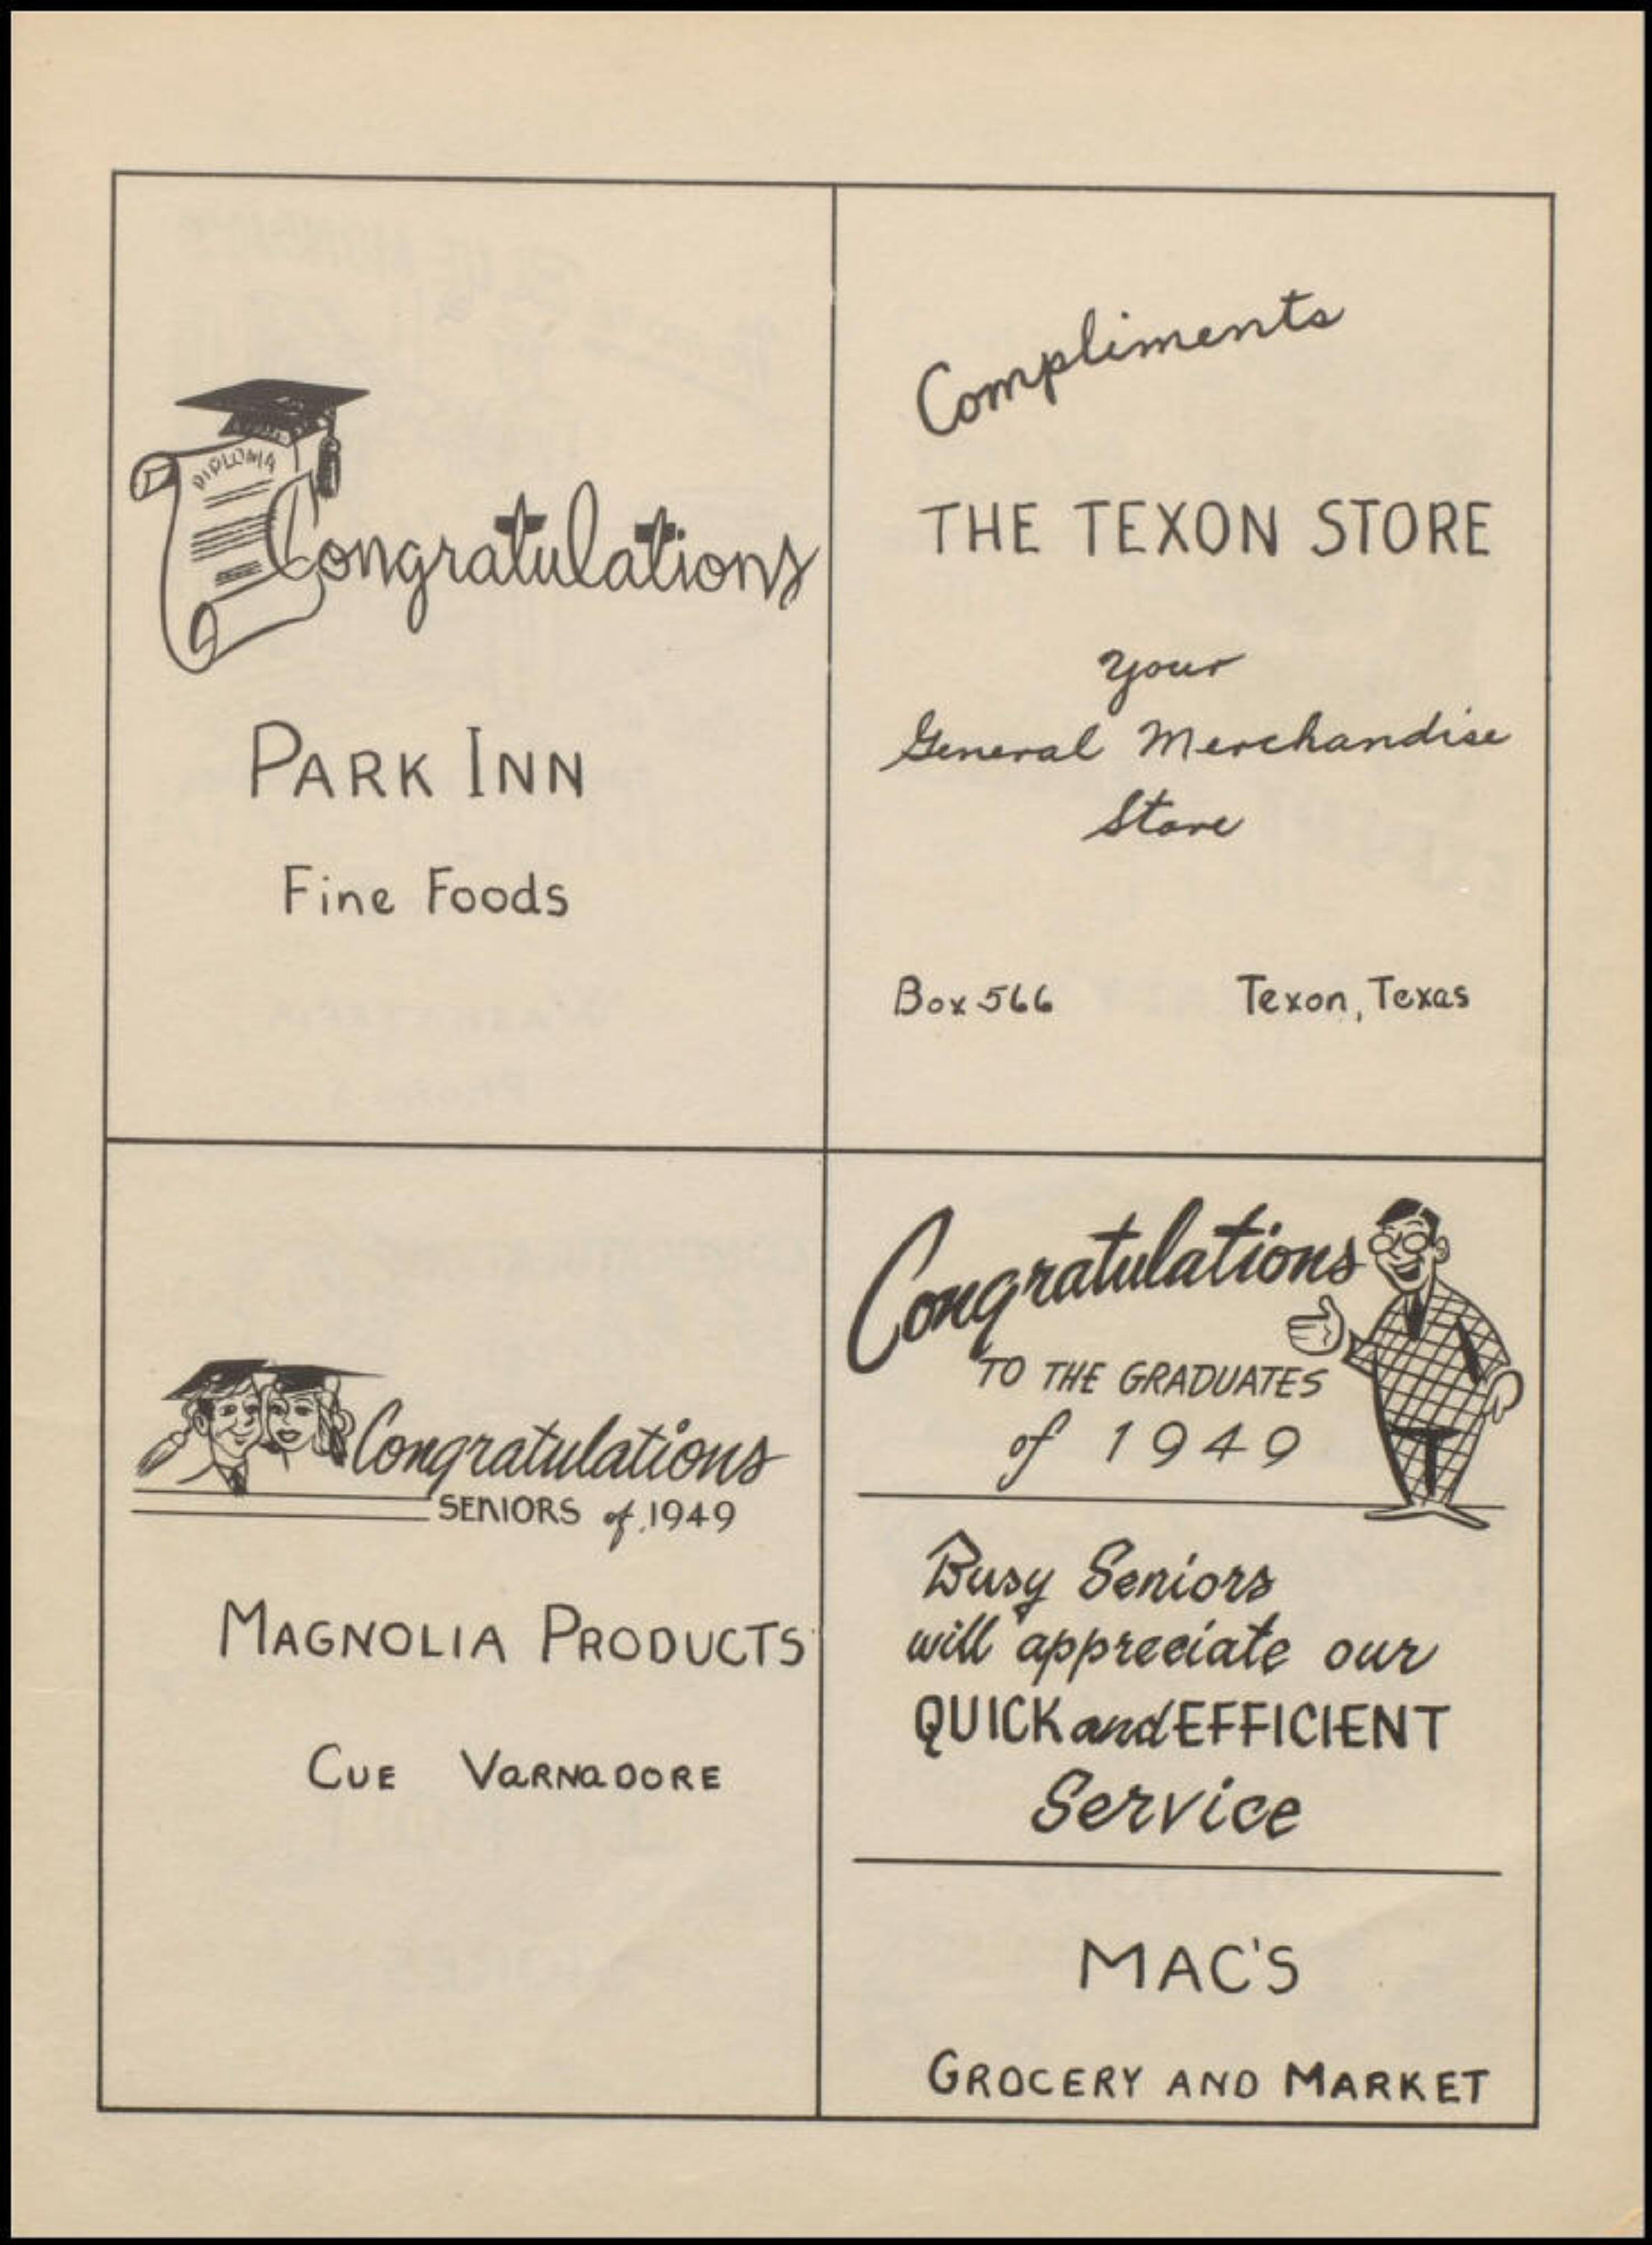 DIPLOMA
Congratulations
PARK INN
Fine Foods
Compliments
THE TEXON STORE
your
General Merchandise
Store
Box 566 Texon, Texas
Congratulations
SENIORS of 1949
MAGNOLIA PRODUCTS
CUE VARNADORE
Congratulations
TO THE GRADUATES
of 1949
Busy Seniors
will appreciate our
QUICK and EFFICIENT
Service
MAC'S
GROCERY AND MARKET